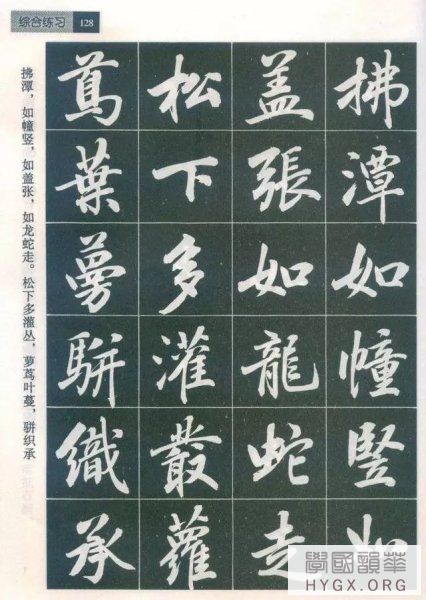 综合练习 128
拂潭如幢竖如
盖張如龍蛇走
松下多灌叢蘿
蔦葉蔓駢織承
拂潭，如幢竖，如盖张，如龙蛇走。松下多灌丛，萝茑叶蔓，骈织承
華韻國學
HYGX.ORG